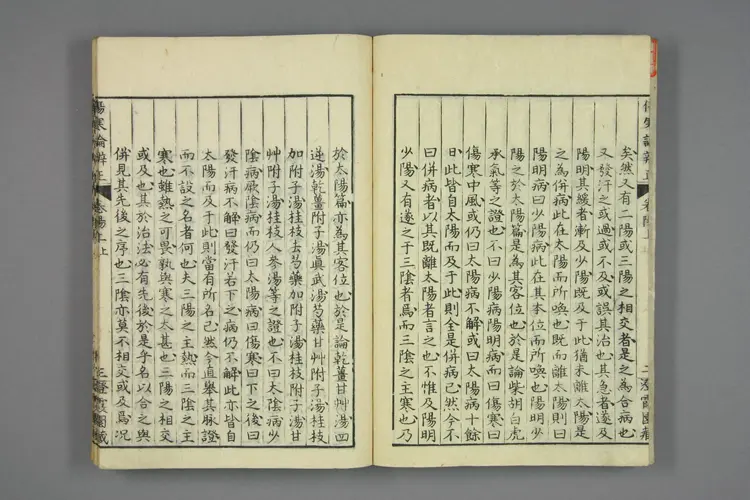 矣然又有二陽或三陽之相交者是之為合病也
又發汗之或過或不及或誤其治也其急者遂及
陽明其緩者漸及少陽既及于此猶未離太陽是
之為併病此在太陽而所喚也既而離太陽則曰
陽明病曰少陽病此在其本位而所喚也陽明少
陽之於太陽篇是為其客位也於是論柴胡白虎
承氣等之證也不曰少陽病陽明病而曰傷寒曰
傷寒中風或仍曰太陽病不解或曰太陽病十餘
日此皆自太陽而及于此則全是併病已然今不
曰併病者以其既離太陽者言之也不惟及陽明
少陽又有遂之于三陰者焉而三陰之主寒也乃
於太陽篇亦為其客位也於是論乾薑甘艸湯四
逆湯乾薑附子湯眞武湯芍藥甘艸附子湯桂枝
加附子湯桂枝去芍藥加附子湯桂枝附子湯甘
艸附子湯桂枝人參湯等之證也不曰太陰病少
陰病厥陰病而仍曰太陽病曰傷寒曰下之後曰
發汗病不解曰發汗若下之病仍不解此亦皆自
太陽而及于此則當有所名已然今直舉其脉證
而不設之名者何也夫三陽之主熱而三陰之主
寒也雖熱之可畏孰與寒之太甚也三陽之相交
或及也其於治法必有先後於是乎名以合之與
併見其先後之序也三陰亦莫不相交或及焉況
傷寒論辨正